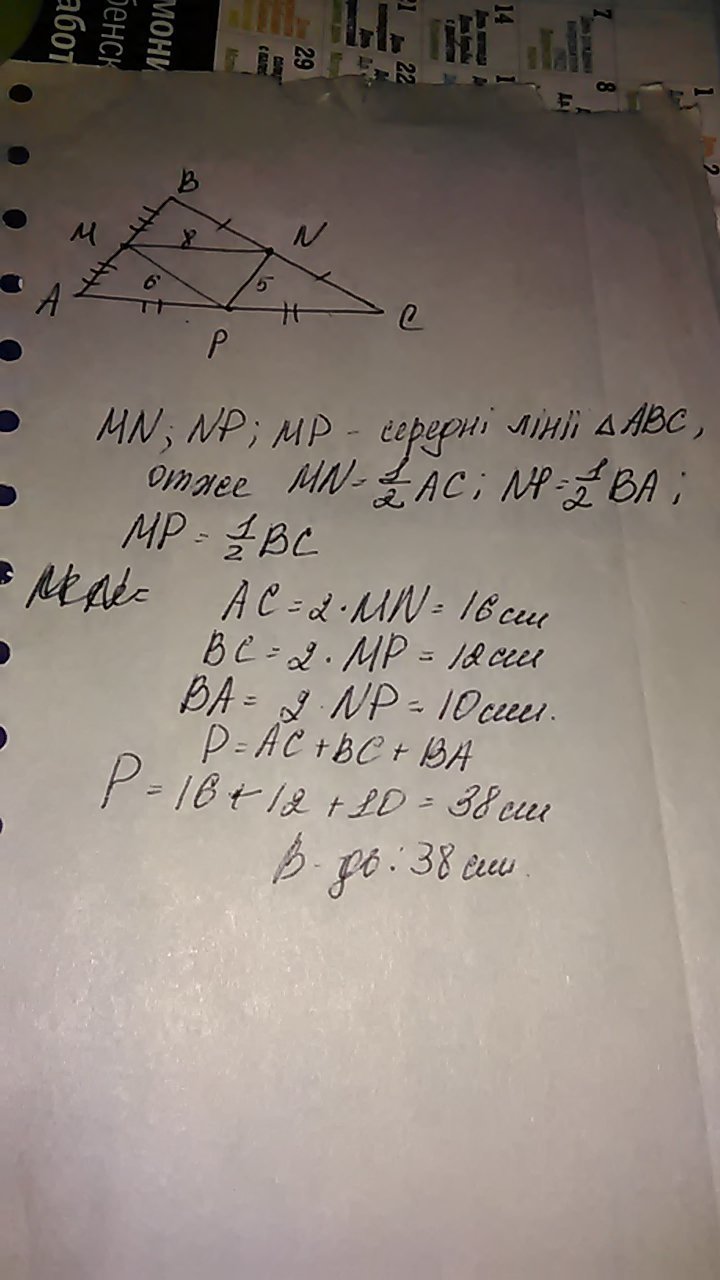 мони
бенск
абот
29
21
22
14
7
8
1
2
B
M
8
N
A
6
5
P
C
MN; NP; MP - середні лінії △ABC,
отже MN=1/2 AC; NP=1/2 BA;
MP = 1/2 BC
AC = 2·MN = 16 см
BC = 2·MP = 12 см
BA = 2 NP = 10 см.
P = AC + BC + BA
P = 16 + 12 + 10 = 38 см
В-дь: 38 см.